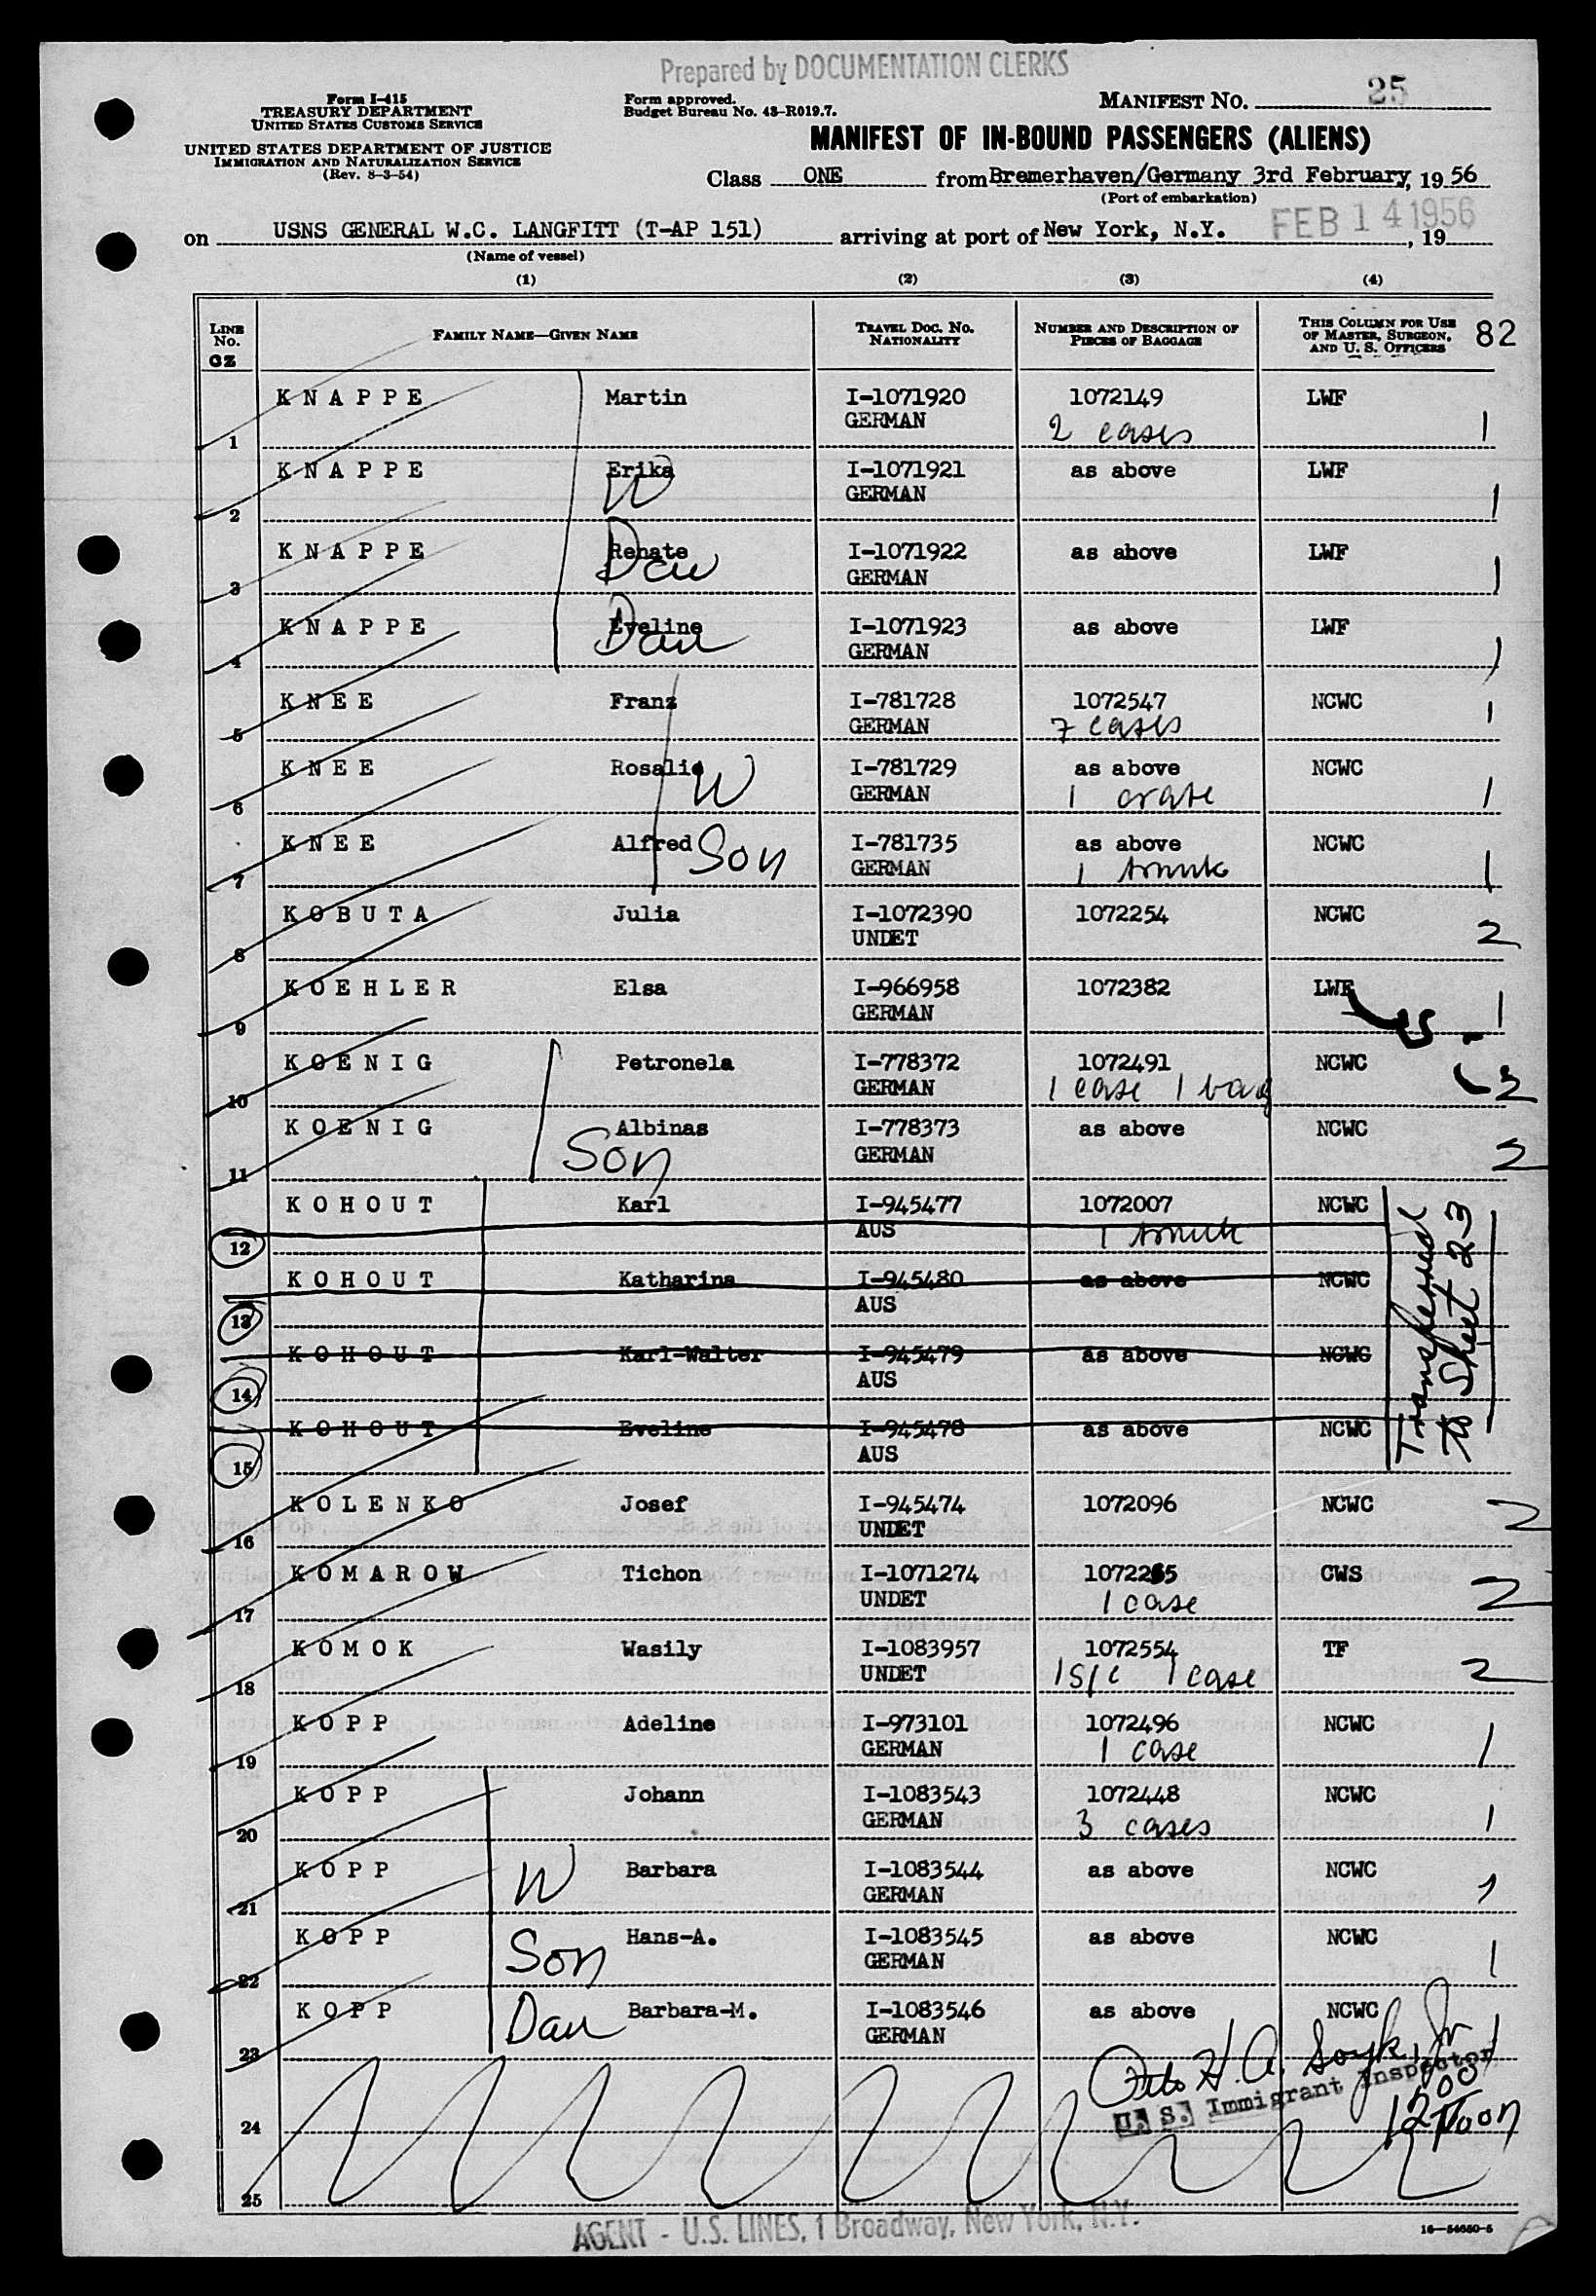 Prepared by DOCUMENTATION CLERKS
Form I-415
TREASURY DEPARTMENT
UNITED STATES CUSTOMS SERVICE
UNITED STATES DEPARTMENT OF JUSTICE
IMMIGRATION AND NATURALIZATION SERVICE
(Rev. 8-3-54)
Form approved.
Budget Bureau No. 43-R019.7.
MANIFEST NO. 25
MANIFEST OF IN-BOUND PASSENGERS (ALIENS)
Class ONE from Bremerhaven/Germany 3rd February, 19 56
(Port of embarkation)
on USNS GENERAL W.C. LANGFITT (T-AP 151) arriving at port of New York, N.Y. FEB 14 1956, 19
(Name of vessel)
(1) (2) (3) (4)
LINE No. FAMILY NAME—GIVEN NAME TRAVEL DOC. NO. NATIONALITY NUMBER AND DESCRIPTION OF PIECES OF BAGGAGE THIS COLUMN FOR USE OF MASTER, SURGEON, AND U. S. OFFICERS 82
GZ
KNAPPE Martin I-1071920 1072149 LWF
1 GERMAN 2 cases 1
KNAPPE Erika I-1071921 as above LWF
2 W GERMAN 1
KNAPPE Renate I-1071922 as above LWF
3 Dau GERMAN 1
KNAPPE Eveline I-1071923 as above LWF
4 Dau GERMAN 1
KNEE Franz I-781728 1072547 NCWC
5 GERMAN 7 cases 1
KNEE Rosalie I-781729 as above NCWC
6 W GERMAN 1 crate 1
KNEE Alfred I-781735 as above NCWC
7 Son GERMAN 1 trunk 1
KOBUTA Julia I-1072390 1072254 NCWC
8 UNDET 2
KOEHLER Elsa I-966958 1072382 LWF
9 GERMAN 1
KOENIG Petronela I-778372 1072491 NCWC
10 GERMAN 1 case 1 bag 2
KOENIG Albinas I-778373 as above NCWC
11 Son GERMAN 2
KOHOUT Karl I-945477 1072007 NCWC
12 AUS 1 trunk
KOHOUT Katharina I-945480 as above NCWC
13 AUS
KOHOUT Karl-Walter I-945479 as above NCWC
14 AUS
KOHOUT Eveline I-945478 as above NCWC
15 AUS
Transferred
to Sheet 23
KOLENKO Josef I-945474 1072096 NCWC
16 UNDET 2
KOMAROW Tichon I-1071274 1072265 CWS
17 UNDET 1 case 2
KOMOK Wasily I-1083957 1072554 TF
18 UNDET 1 S/C 1 case 2
KOPP Adeline I-973101 1072496 NCWC
19 GERMAN 1 case 1
KOPP Johann I-1083543 1072448 NCWC
20 GERMAN 3 cases 1
KOPP Barbara I-1083544 as above NCWC
21 W GERMAN 1
KOPP Hans-A. I-1083545 as above NCWC
22 Son GERMAN 1
KOPP Barbara-M. I-1083546 as above NCWC
23 Dau GERMAN 1
Otto H. A. Soyk, Jr
U. S. Immigrant Inspector
1200
Noon
24
25
AGENT - U.S. LINES, 1 Broadway, New York, N.Y.
16—54650-5